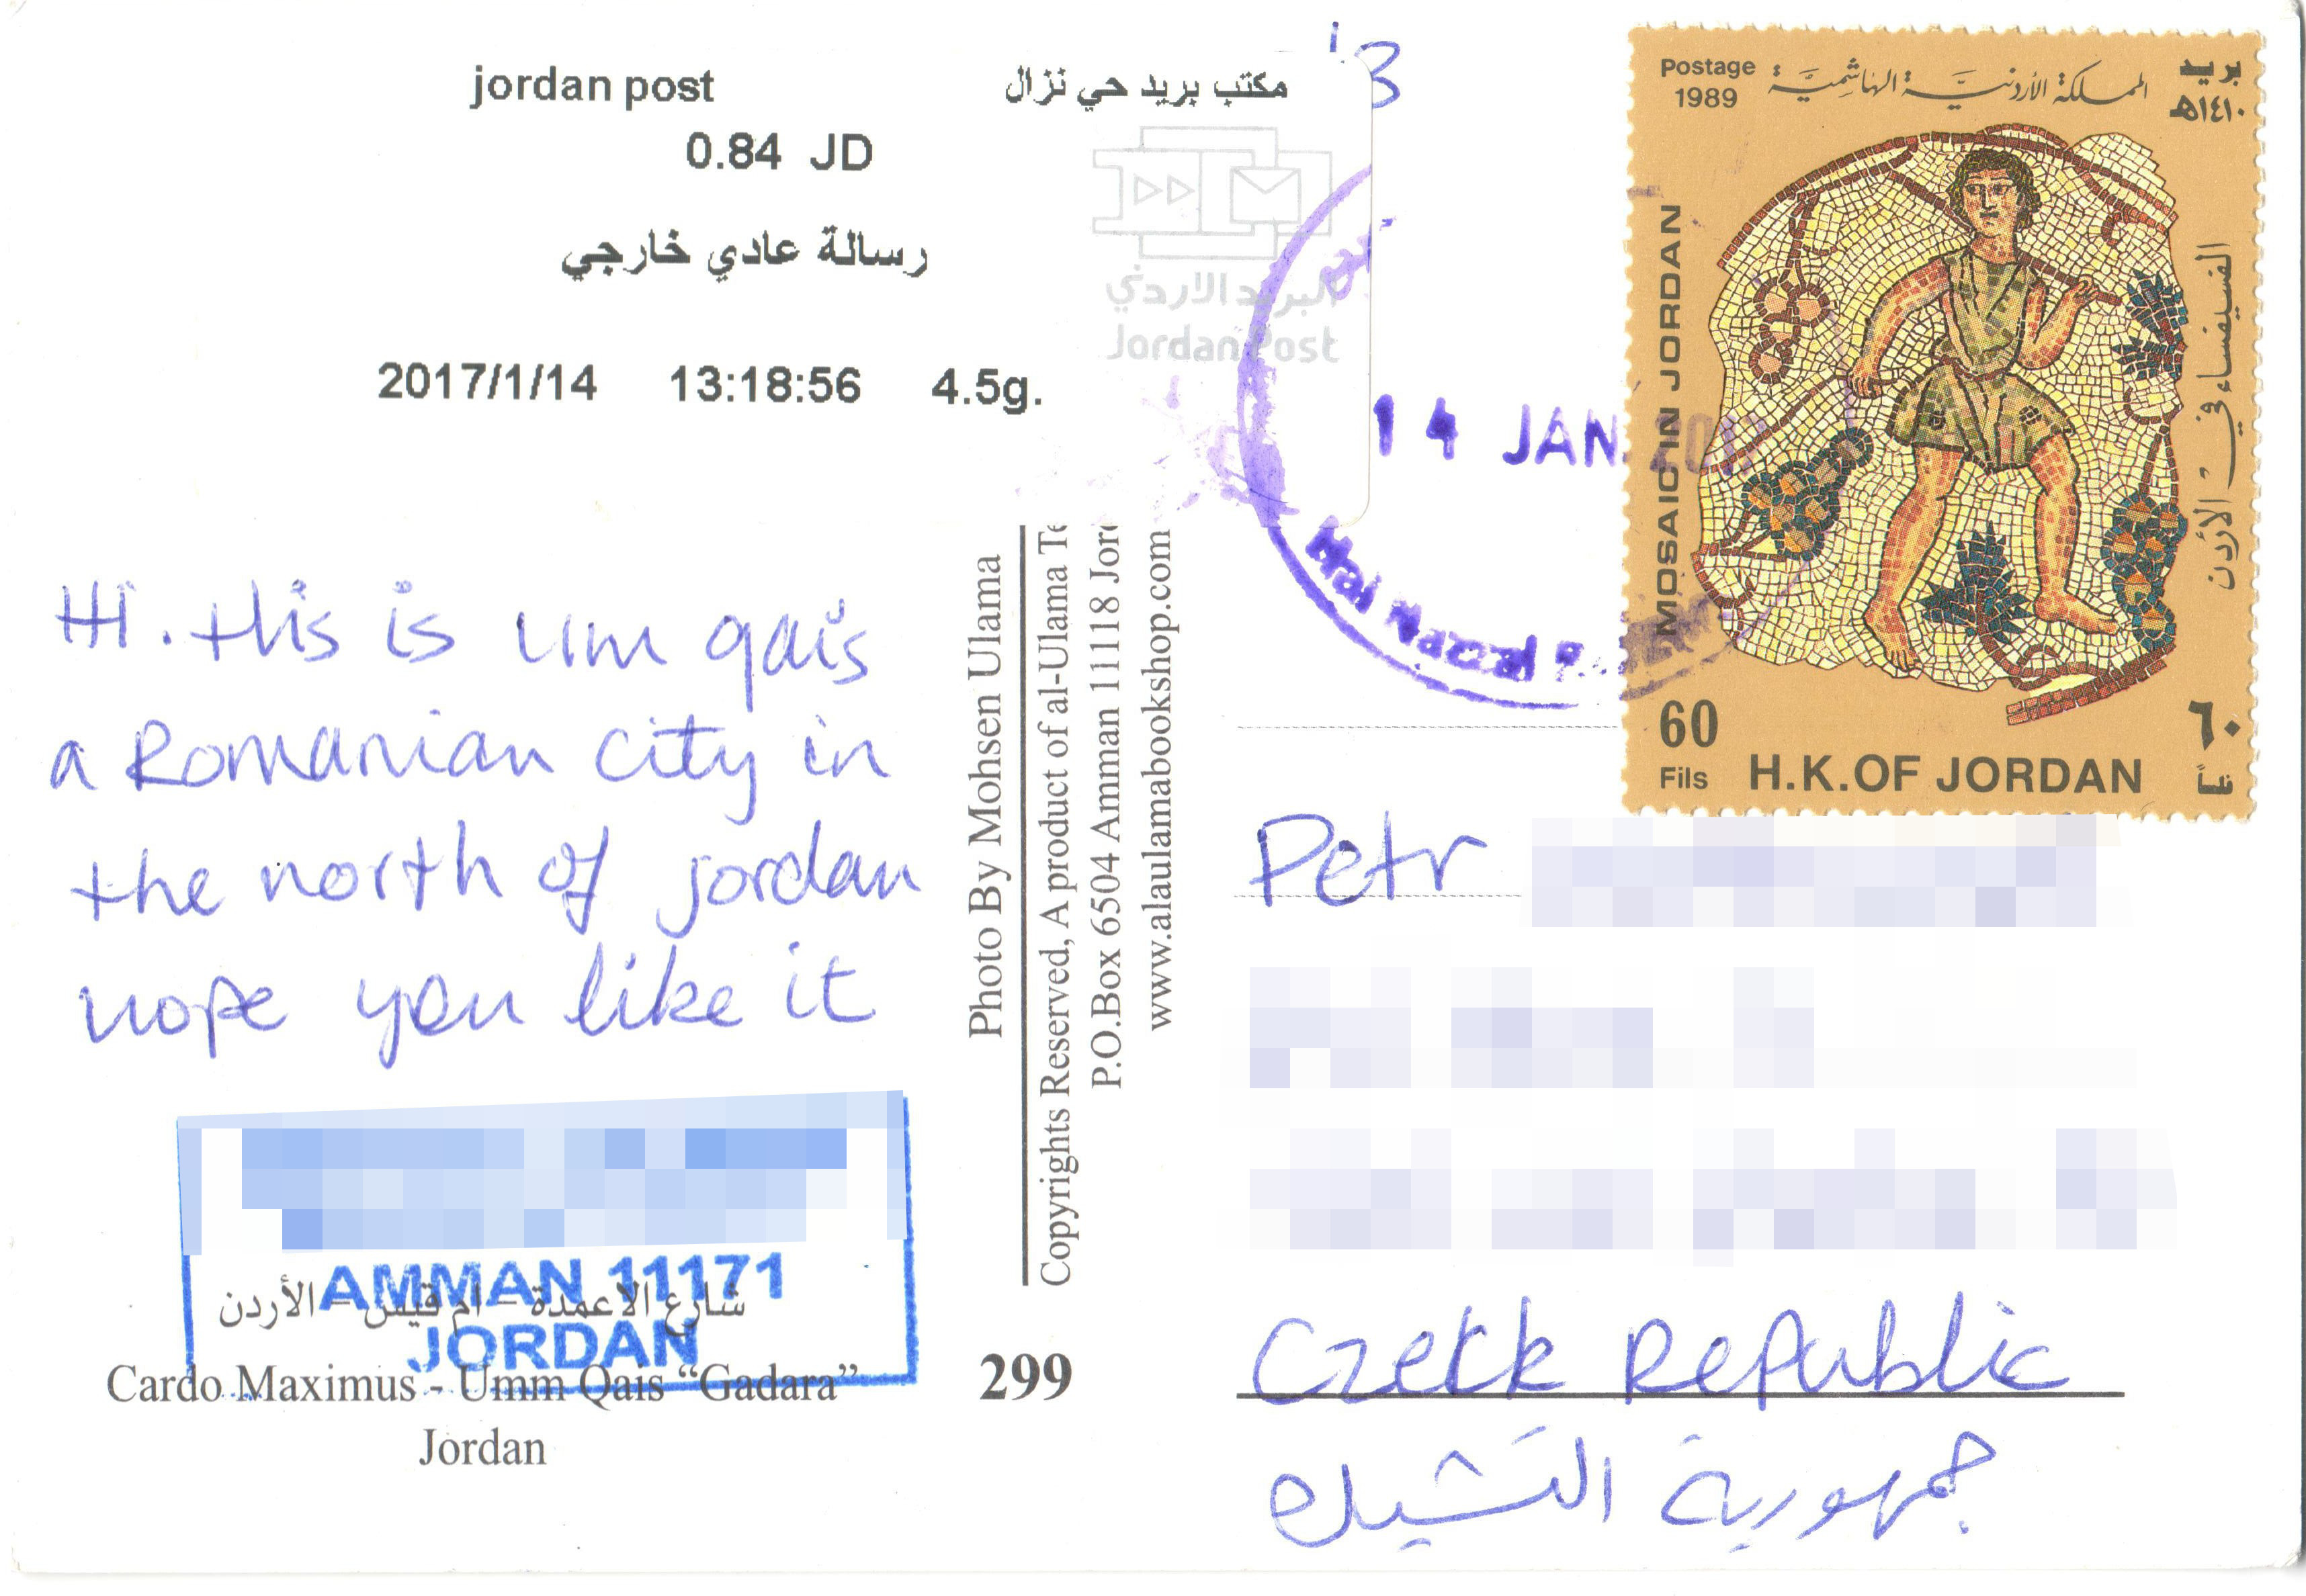 jordan post
مكتب بريد حي نزال
0.84 JD
رسالة عادي خارجي
2017/1/14 13:18:56 4.5g.
البريد الاردني
Jordan Post
14 JAN. 2017
Hai Nazzal
Postage
1989
المملكة الأردنية الهاشمية
بريد
١٤١٠هـ
MOSAIC IN JORDAN
الفسيفساء في الأردن
60
Fils
H.K.OF JORDAN
٦٠
فلساً
Hi. this is um qais
a Romanian city in
the north of jordan
hope you like it
AMMAN 11171
JORDAN
شارع الاعمدة – ام قيس – الأردن
Cardo Maximus - Umm Qais “Gadara”
Jordan
299
Photo By Mohsen Ulama
Copyrights Reserved, A product of al-Ulama
P.O.Box 6504 Amman 11118
www.alaulamabookshop.com
Petr
Czetk Republic
جمهورية التشيك